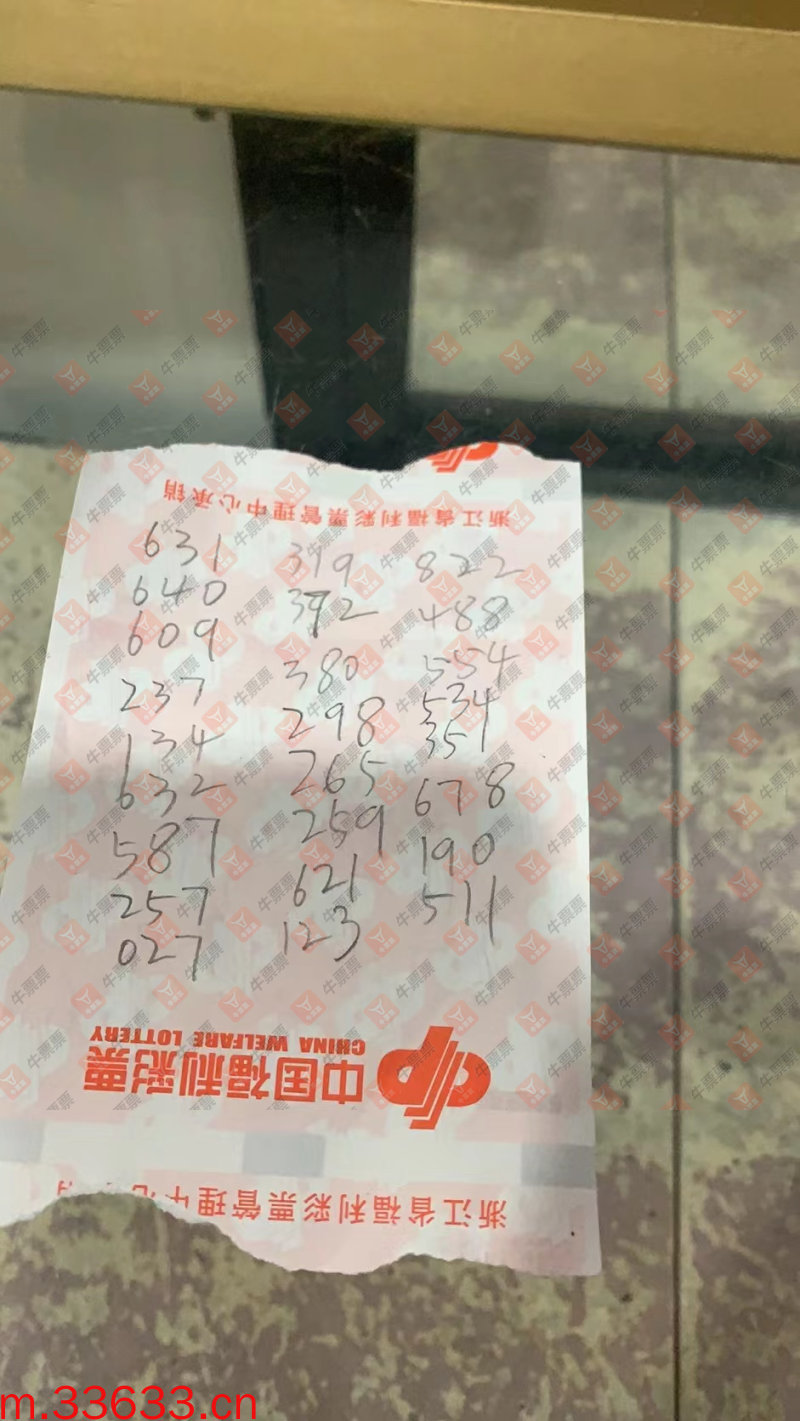 浙江省福利彩票管理中心承销
631 319 822
640 392 488
609 380 554
237 298 534
134 265 351
632 259 678
587 621 190
257 123 511
027
CHINA WELFARE LOTTERY
中国福利彩票
浙江省福利彩票管理中心
牛票票
m.33633.cn